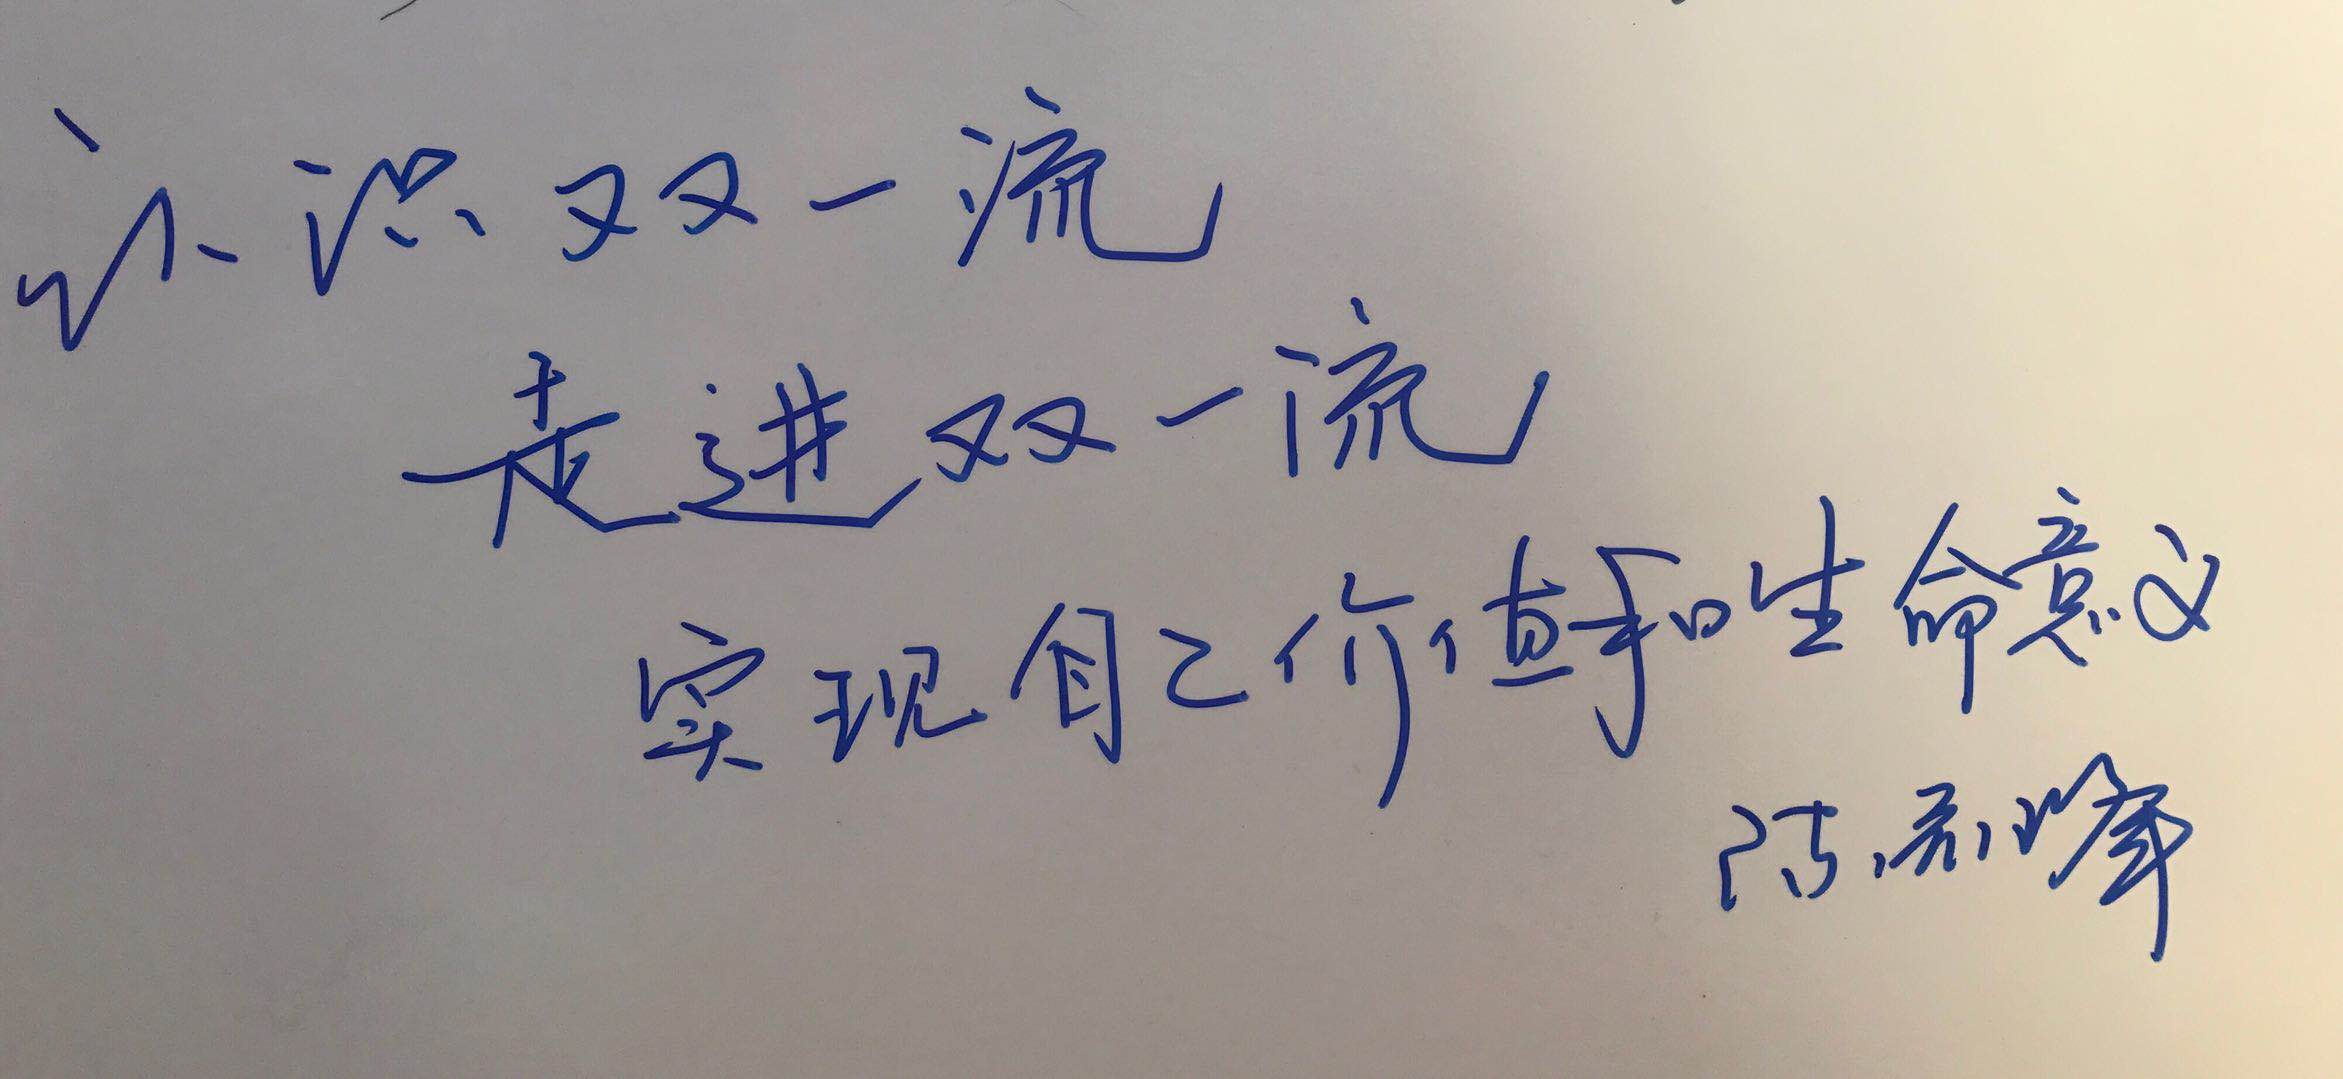 认识双一流
走进双一流
实现自己价值和生命意义
陈志峰